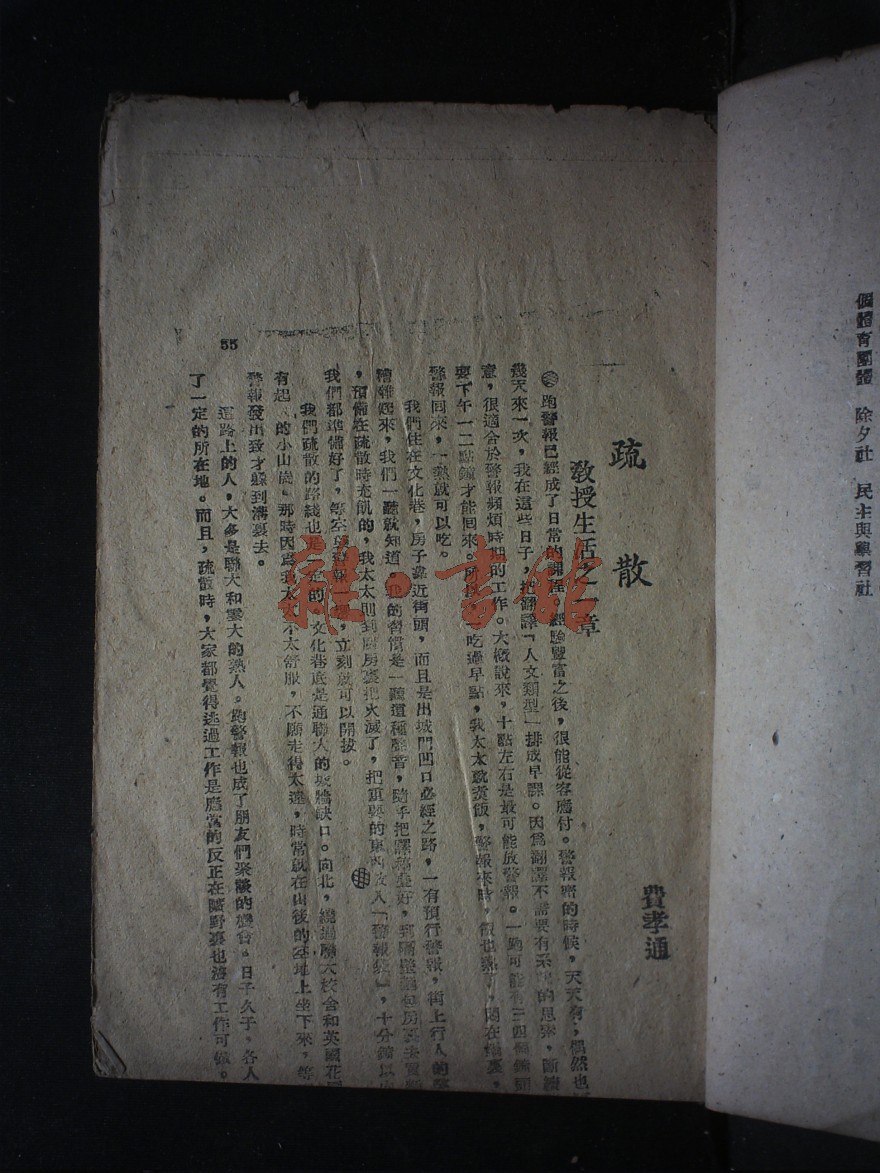 個體育團體　除夕社　民主與學習社
疏　散
教授生活之一章
費孝通
跑警報已經成了日常的課程。經驗豐富之後，很能從容應付。警報密的時候，天天有，偶然也
幾天來一次，我在這些日子，把翻譯「人文類型」排成早課。因爲翻譯不需要有系　的思索，斷續
意，很適合於警報頻煩時期的工作。大概說來，十點左右是最可能放警報。一點可能有三四個
要下午一二點鐘才能回來。所以，吃過早點，我太太就煮飯，警報來時，飯也熟了，悶在　裏，
警報回來，一熱就可以吃。
我們住在文化巷，房子靠近街頭，而且是出城門凹口必經之路，一有預行警報，街上行人的
嘈雜起來，我們一聽就知道。我的習慣是一聽這種聲音，隨手把譯稿　好，到隔壁麵包房裏去買
，預備在疏散時充飢的，我太太則到廚房裏把火滅了，把重要的東西放入「警報袋」，十分鐘以
我們都準備好了，等空襲警報一　，立刻就可以開拔。
我們疏散的路綫也是一定的，文化巷底是通聯大的城牆缺口。向北，繞過聯大校舍和英國花
有起　的小山崗。那時因爲我太太不太舒服，不願走得太遠，時常就在山後的　地上坐下來，等
警報發出致才躲到溝裏去。
這路上的人，大多是聯大和雲大的熟人。跑警報也成了朋友們聚談的機會。日子久子，各人
了一定的所在地。而且，疏散時，大家都覺得逃過工作是應當的反正在曠野裏也沒有工作可做。
55
龍〇書館